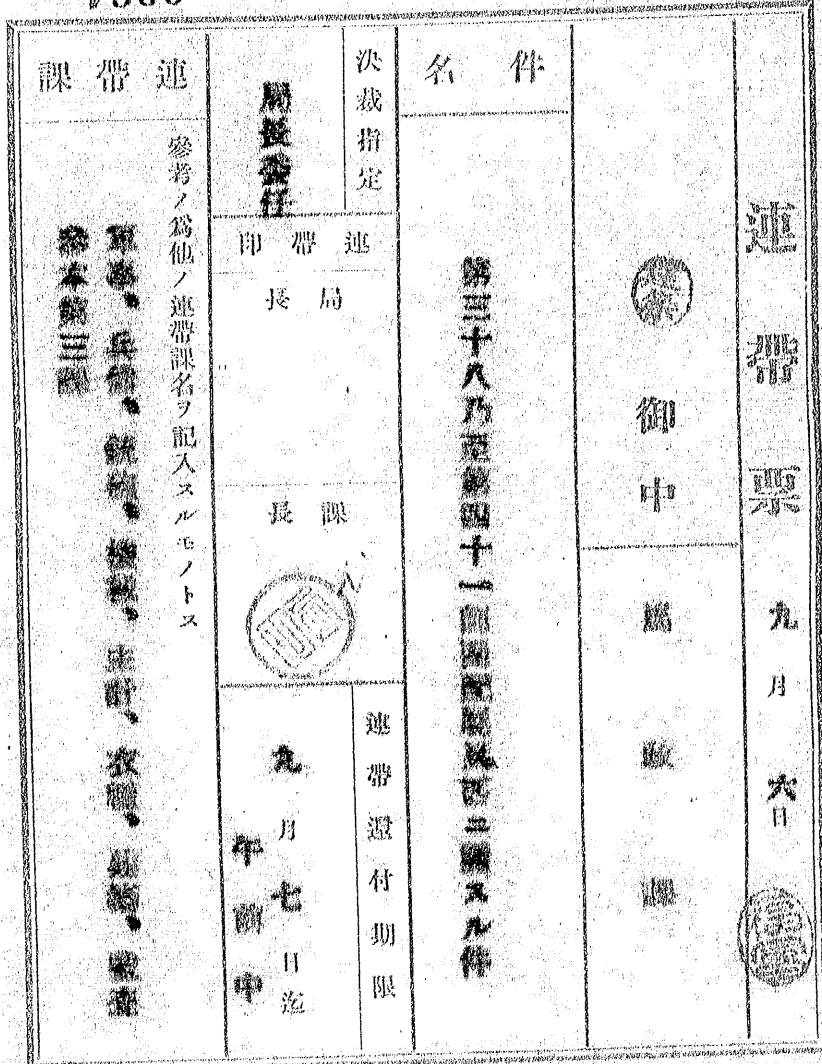 連帶票 九月六日
御中
馬政課
件名
第三十八乃至第四十一師團 馬ニ關スル件
決裁指定
局長委任
連帶印
局長
課長
連帶還付期限
九月七日迄
午前中
連帶課
參考ノ爲他ノ連帶課名ヲ記入スルモノトス
軍事、兵備、 主計、衣糧、
參本第三課